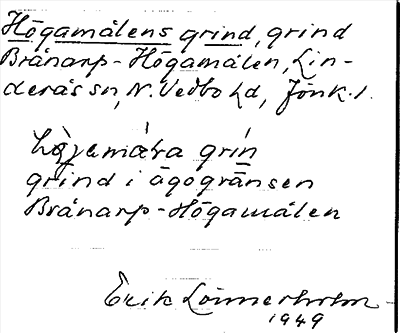 Högamålens grind, grind
Brånarp-Högamålen, Lin-
derås sn, N. Vedbo hd, Jönk. l.
grin
grind i ägogränsen
Brånarp-Högamålen
Erik Lönnerholm
1949